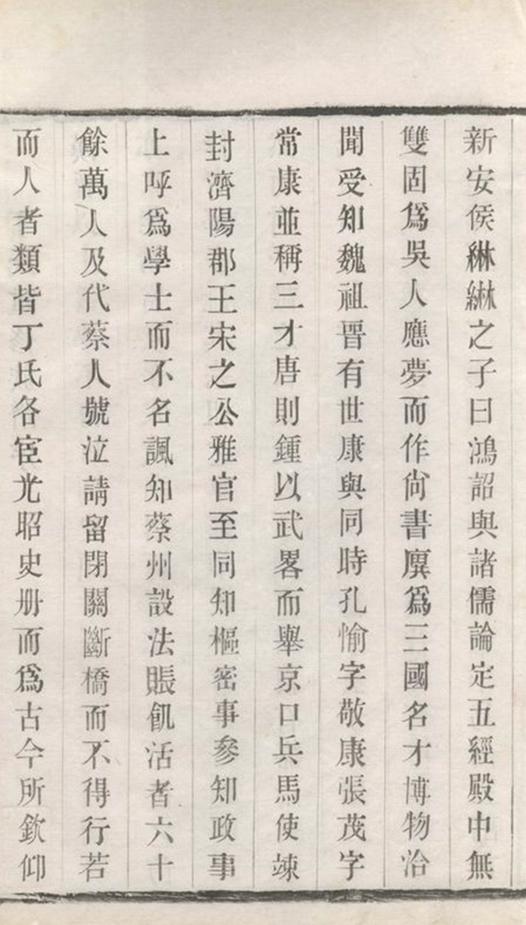 新安侯綝綝之子曰鴻詔與諸儒論定五經殿中無
雙固爲吳人應夢而作尙書廙爲三國名才博物洽
聞受知魏祖晉有世康與同時孔愉字敬康張茂字
常康並稱三才唐則鍾以武畧而舉京口兵馬使竦
封濟陽郡王宋之公雅官至同知樞密事參知政事
上呼爲學士而不名諷知蔡州設法賬飢活者六十
餘萬人及代蔡人號泣請留閉關斷橋而不得行若
而人者類皆丁氏各宦光昭史册而爲古今所欽仰